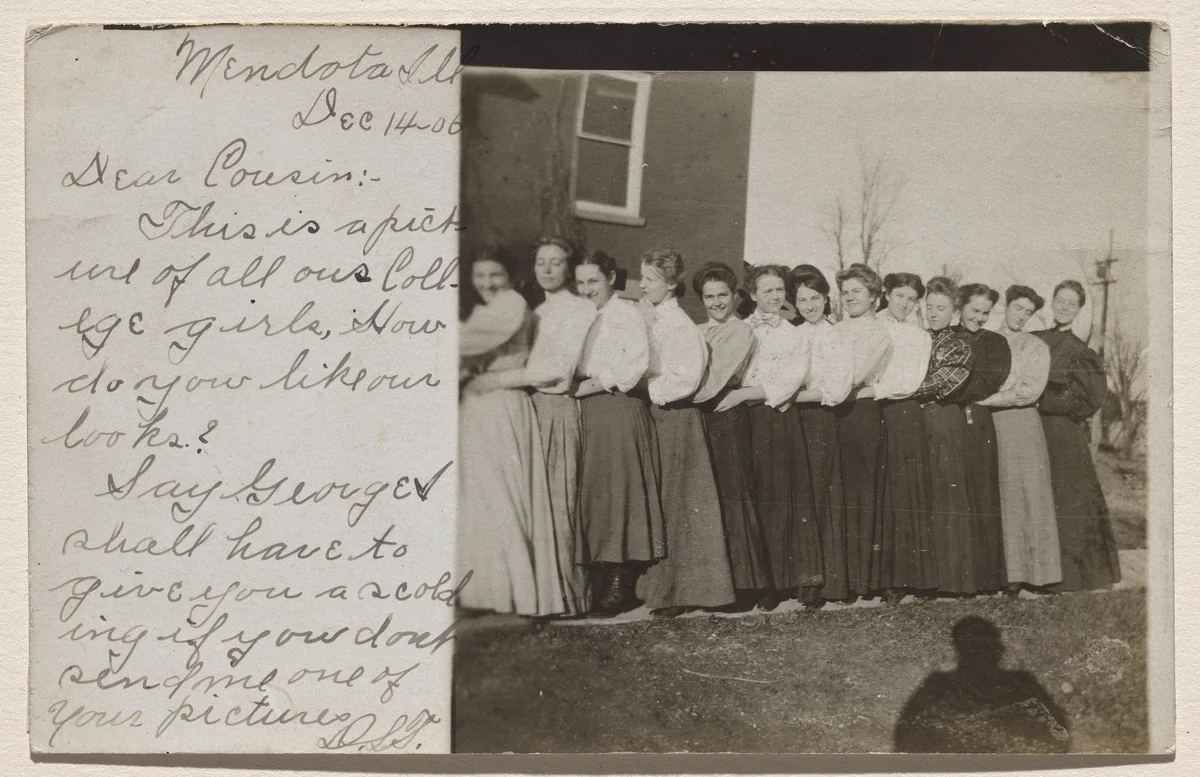 Mendota Ill
Dec 14-06
Dear Cousin:-
This is a pict
ure of all our Coll-
ege girls, How
do you like our
looks?
Say George I
shall have to
give you a scold
ing if you dont
send me one of
your pictures
D.S.T.